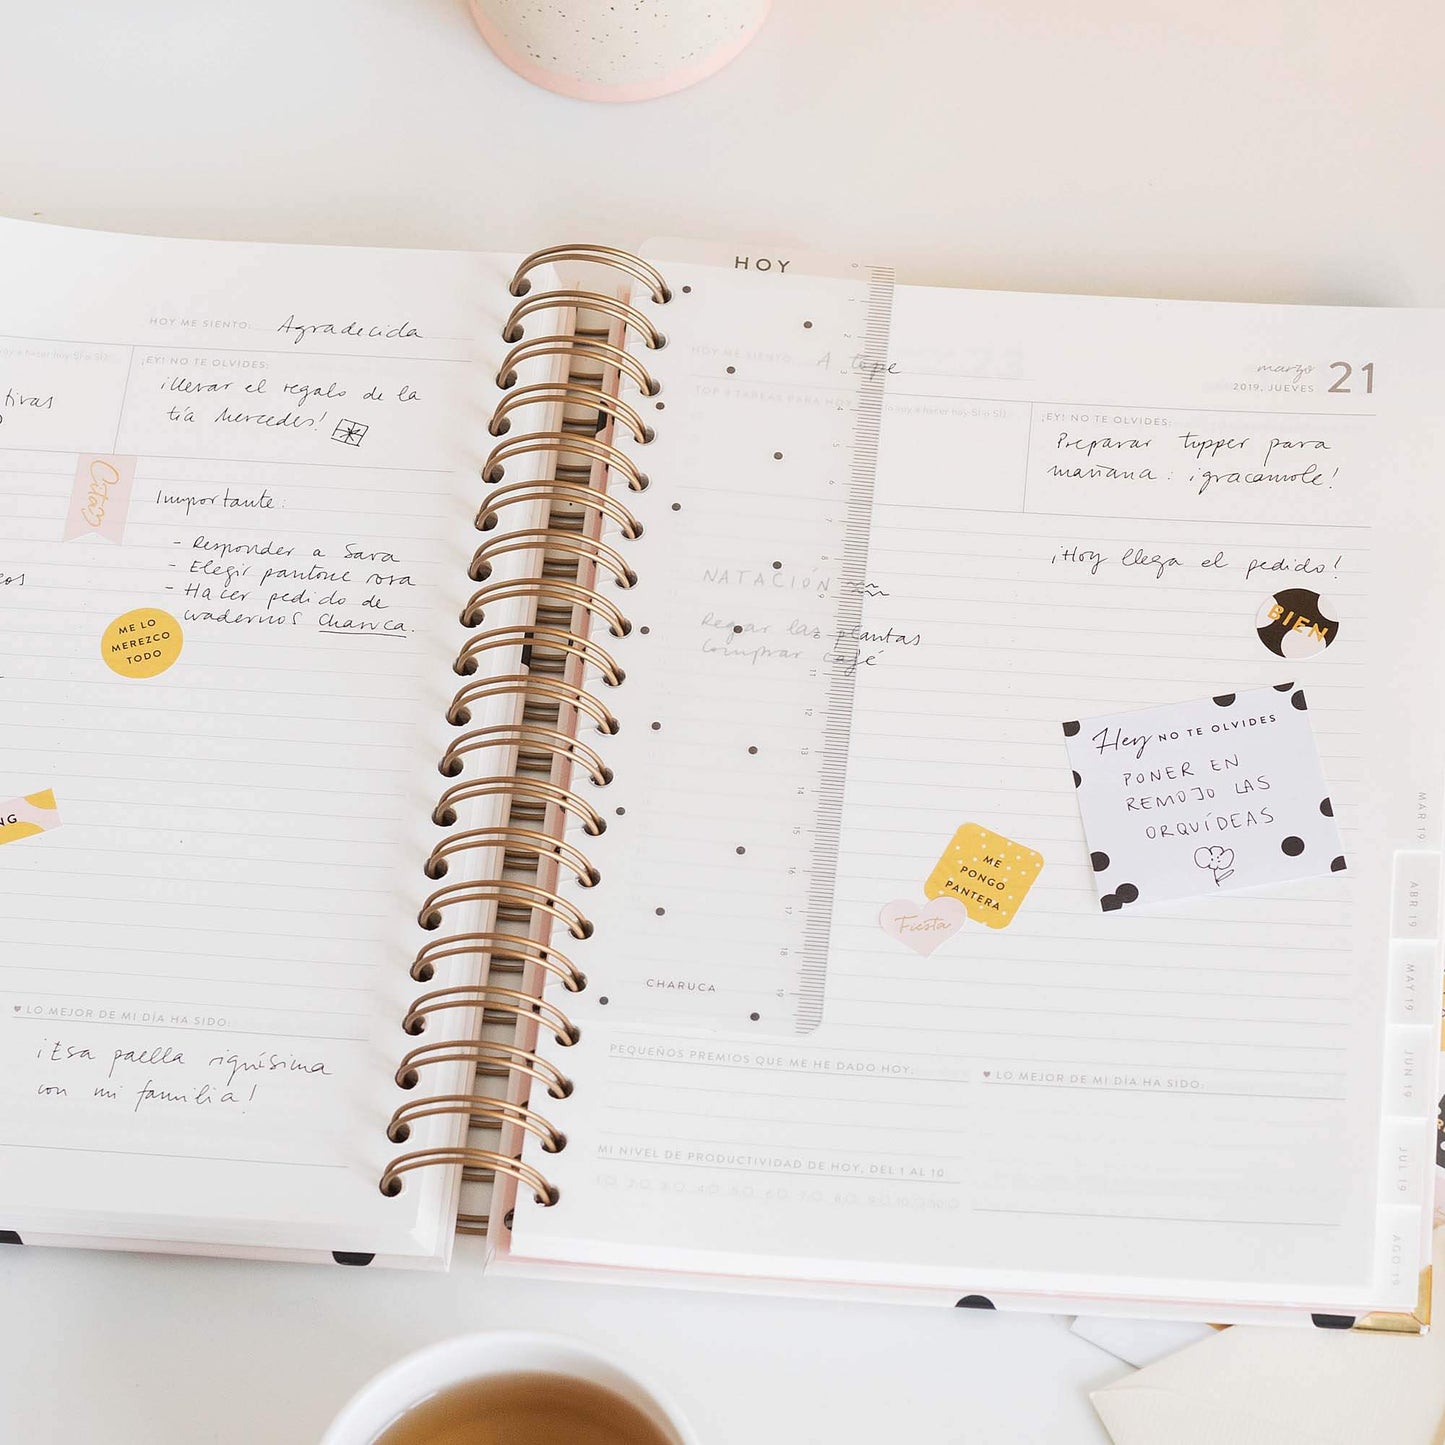 HOY ME SIENTO: Agradecida
¡EY! NO TE OLVIDES:
¡llevar el regalo de la
tía Mercedes!
Citas
Importante:
- Responder a Sara
- Elegir pantone rosa
- Hacer pedido de
cuadernos Charuca.
ME LO
MEREZCO
TODO
NG
LO MEJOR DE MI DÍA HA SIDO:
¡Esa paella riquísima
con mi familia!
HOY
0
1
2
3
4
5
6
7
8
9
11
12
13
14
15
16
17
18
19
HOY ME SIENTO: A tope
TOP 9 TAREAS PARA HOY
NATACIÓN
Regar las plantas
Comprar café
CHARUCA
marzo 21
2019, JUEVES
¡EY! NO TE OLVIDES:
Preparar tupper para
mañana: ¡gracamole!
¡Hoy llega el pedido!
BIEN
Hey NO TE OLVIDES
PONER EN
REMOJO LAS
ORQUÍDEAS
ME
PONGO
PANTERA
Fiesta
PEQUEÑOS PREMIOS QUE ME HE DADO HOY:
LO MEJOR DE MI DÍA HA SIDO:
MI NIVEL DE PRODUCTIVIDAD DE HOY, DEL 1 AL 10
MAR 19
ABR 19
MAY 19
JUN 19
JUL 19
AGO 19